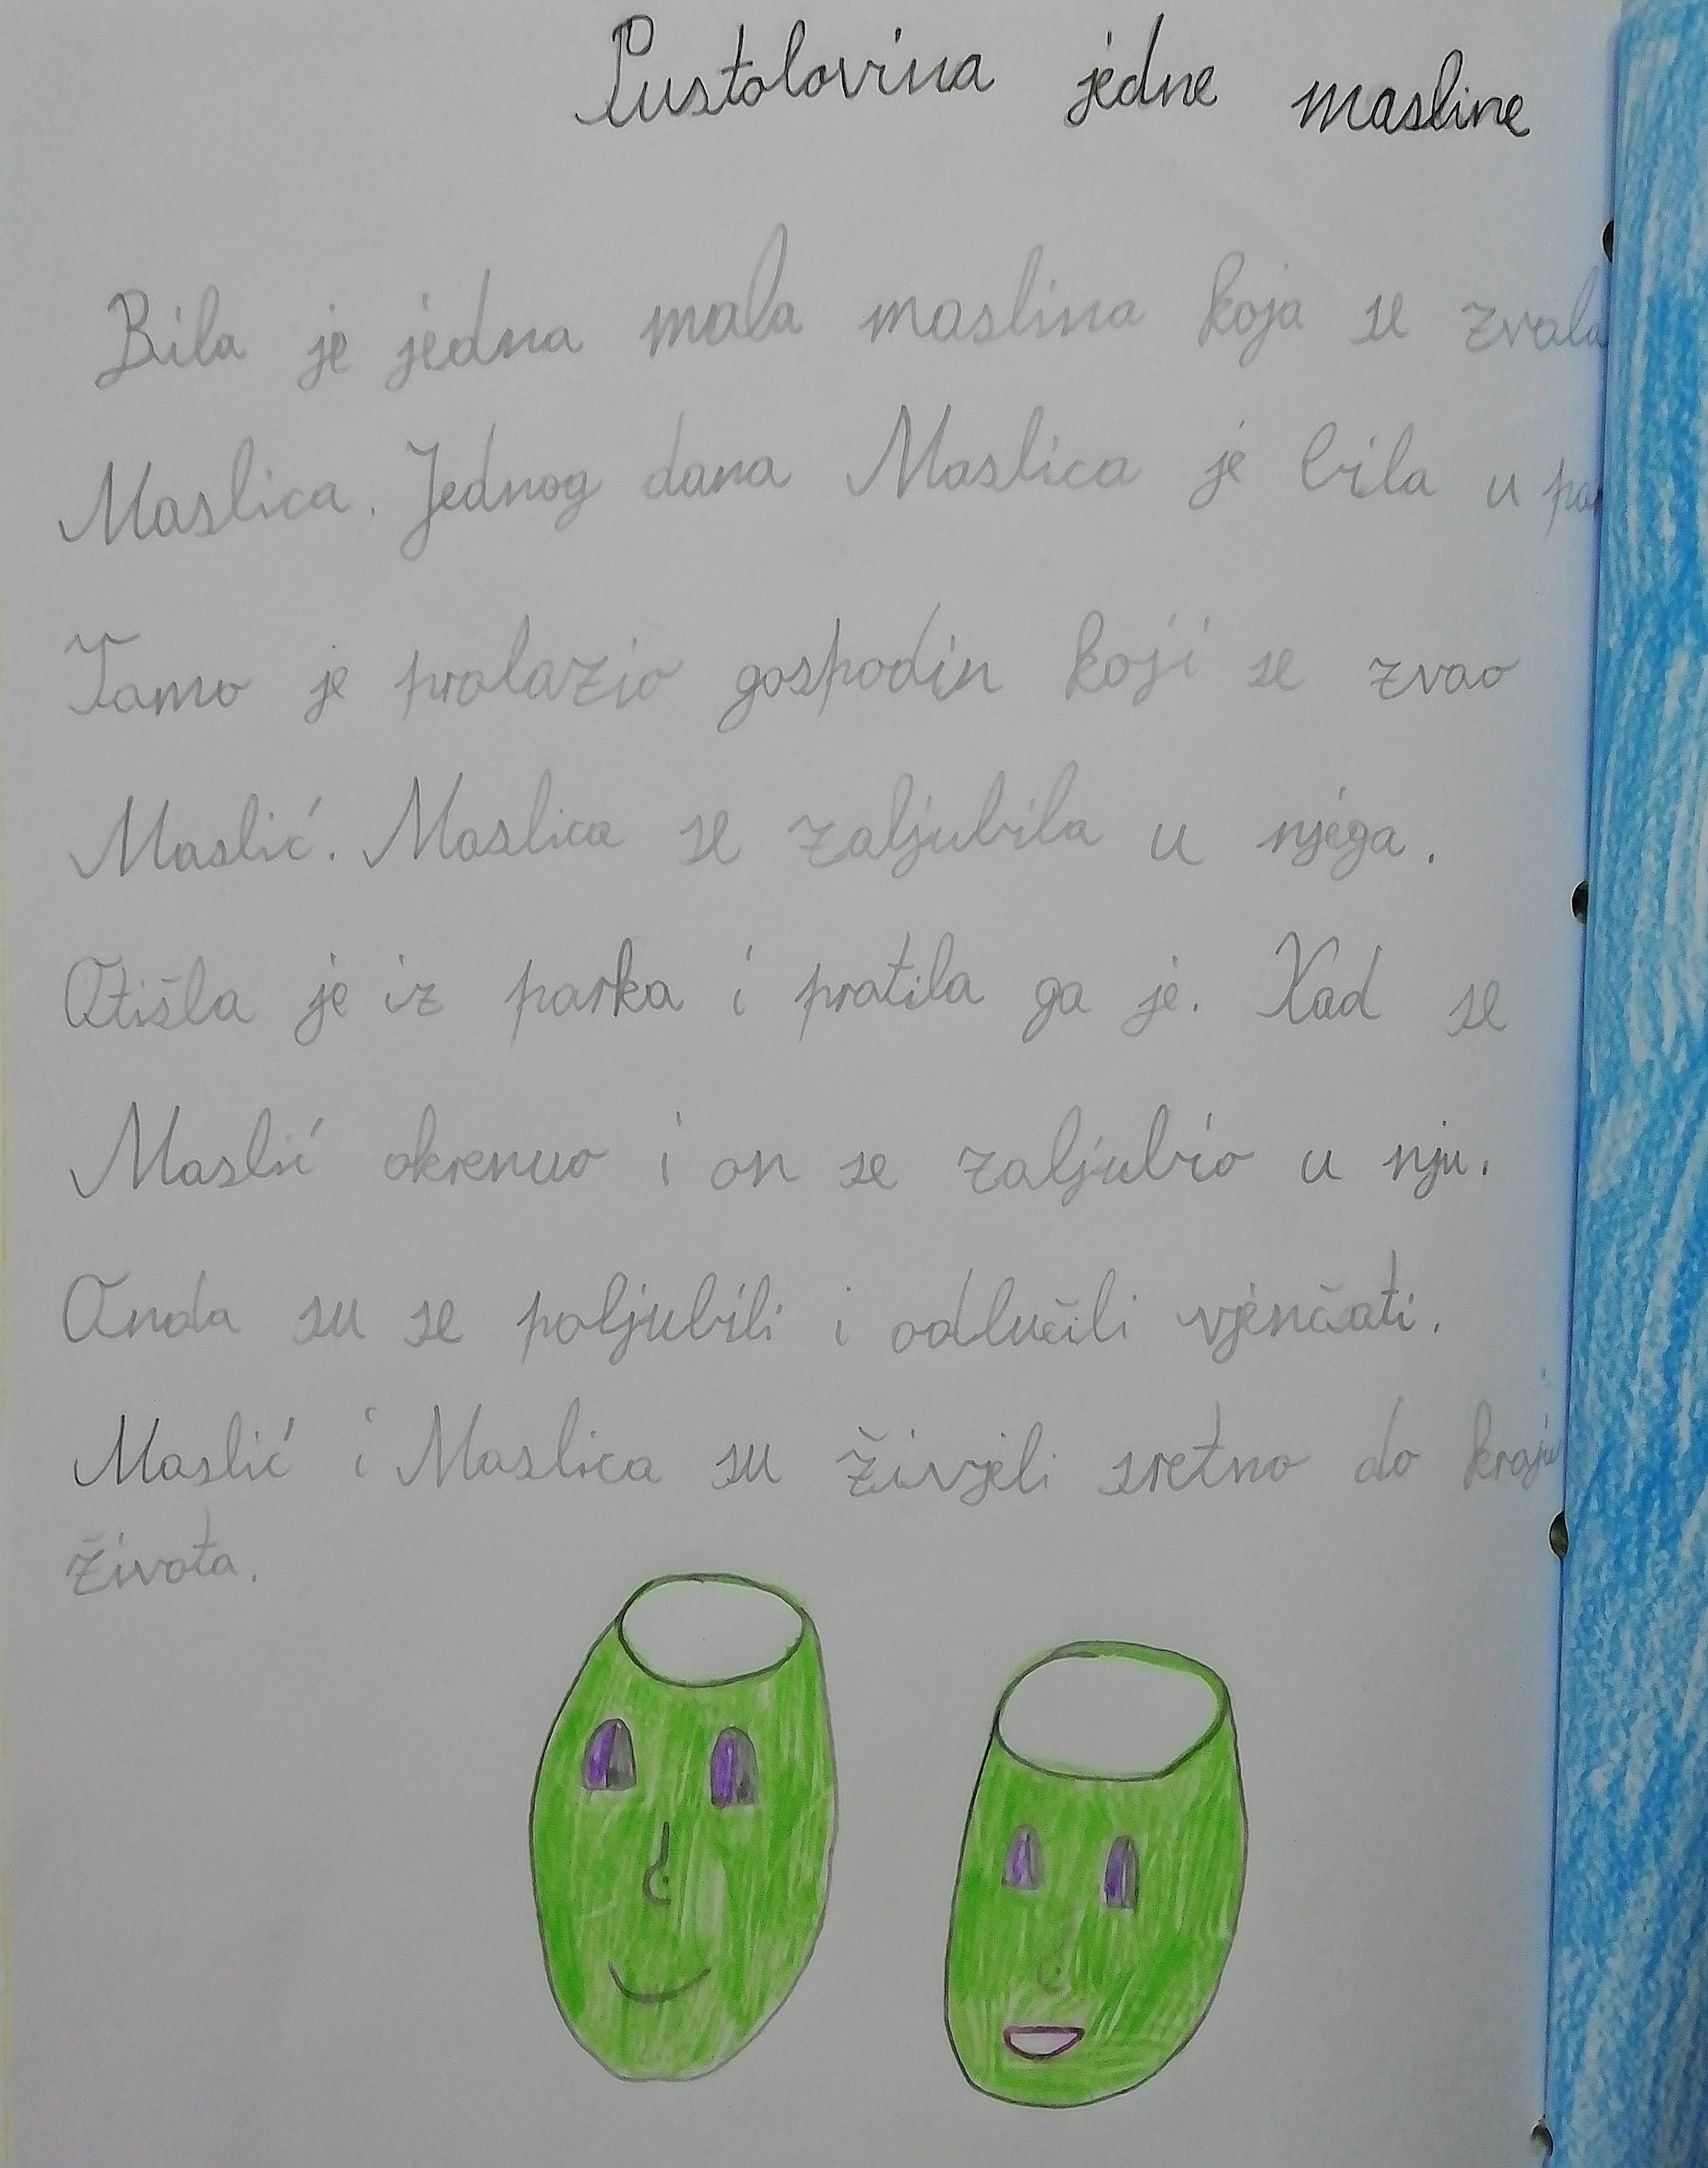 Pustolovina jedne masline
Bila je jedna mala maslina koja se zvala
Maslica. Jednog dana Maslica je bila u
Tamo je prolazio gospodin koji se zvao
Maslić. Maslica se zaljubila u njega.
Otišla je iz parka i pratila ga je. Kad se
Maslić okrenuo i on se zaljubio u nju.
Onda su se poljubili i odlučili vjenčati.
Maslić i Maslica su živjeli sretno do kraja
života.